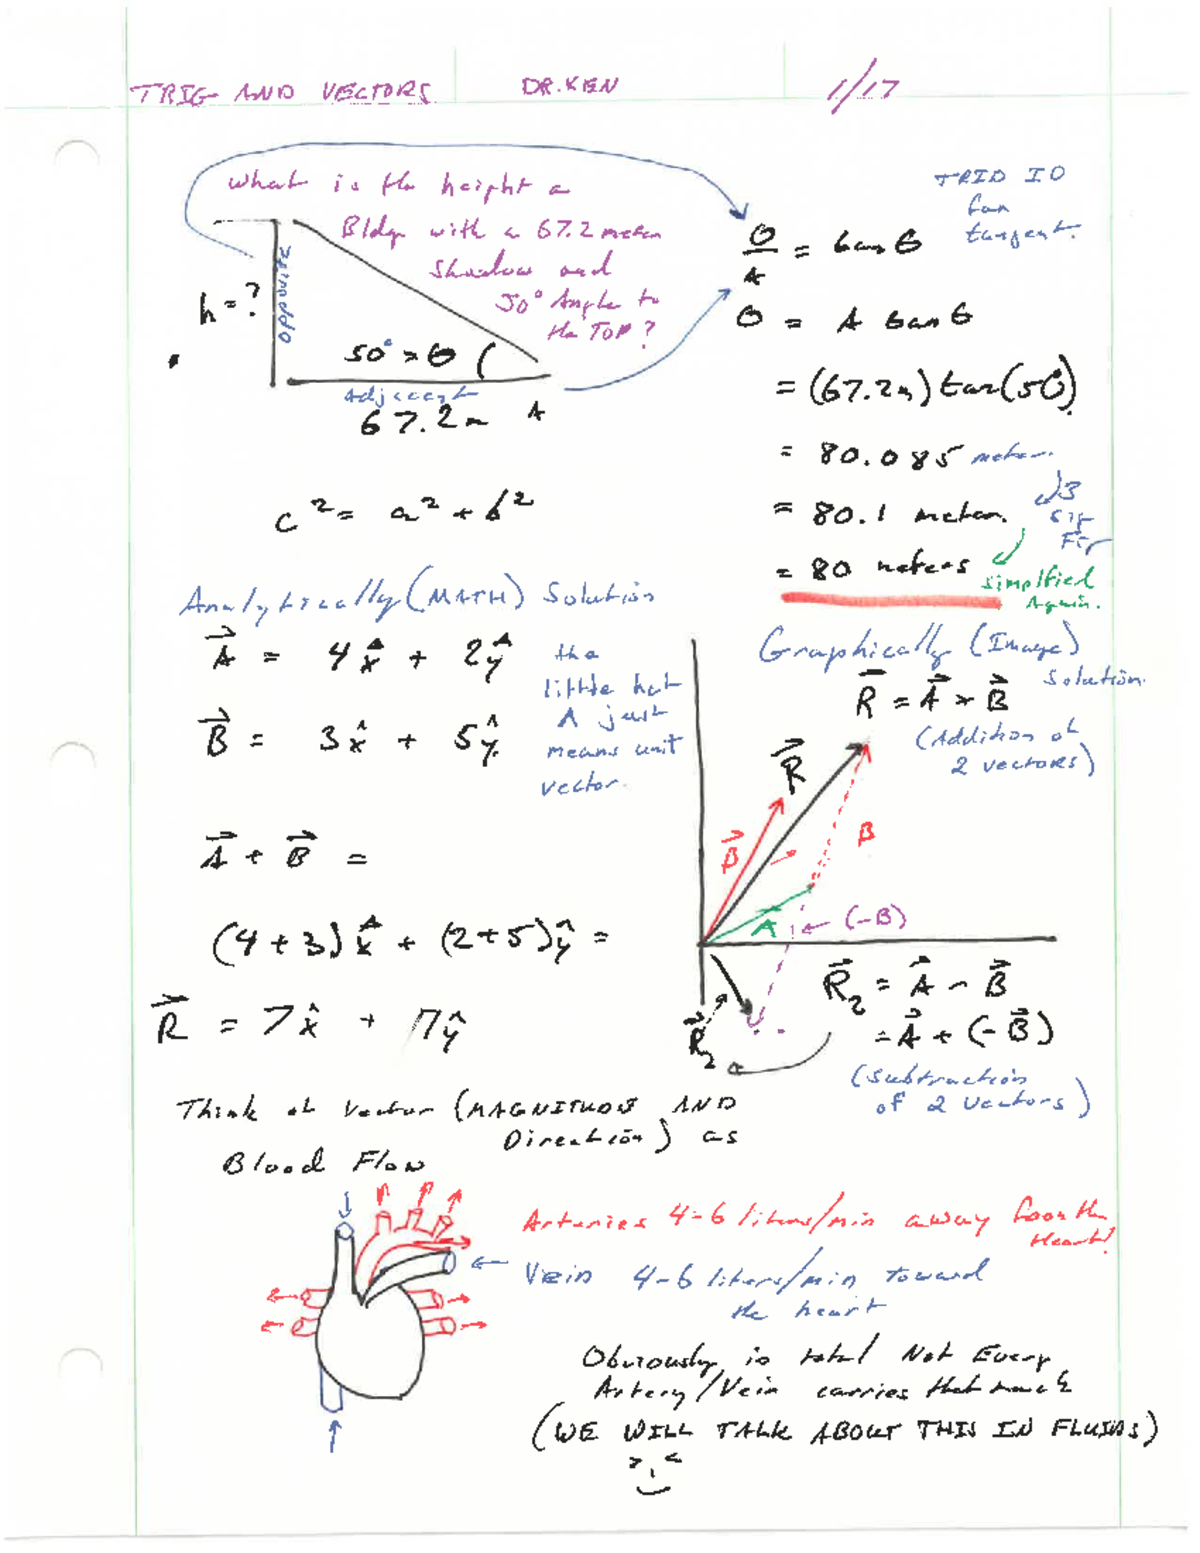 TRIG AND VECTORS DR. KEN 1/17
What is the height a
Bldg with a 67.2 meter
shadow and
50° Angle to
the TOP?
h = ?
opposite
50° = θ
Adjacent
67.2m A
TRIG ID
for
tangent.
O/A = tan θ
O = A tan θ
= (67.2m) tan(50°)
= 80.085 meter.
= 80.1 meter.
3
Sig
Fig
= 80 meters
simplified
Again.
c² = a² + b²
Analytically (MATH) Solution
A⃗ = 4x̂ + 2ŷ
B⃗ = 3x̂ + 5ŷ
the
little hat
^ just
means unit
vector.
A⃗ + B⃗ =
(4+3)x̂ + (2+5)ŷ =
R⃗ = 7x̂ + 7ŷ
Graphically (Image)
Solution.
R⃗ = A⃗ + B⃗
(Addition of
2 vectors)
R⃗
B⃗
B
A⃗
(-B)
R⃗₂
R⃗₂ = A⃗ - B⃗
= A⃗ + (-B⃗)
(Subtraction
of 2 vectors)
Think of Vector (MAGNITUDE AND
Direction) as
Blood Flow
Arteries 4-6 liters/min away from the
Heart!
Vein 4-6 liters/min toward
the heart
Obviously is total Not Every
Artery/Vein carries that much
(WE WILL TALK ABOUT THIS IN FLUIDS)